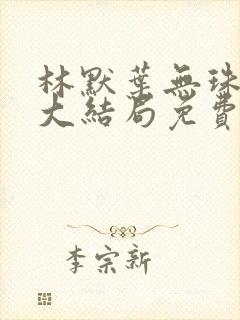 林默葉無珠
大結局免費
李宗新